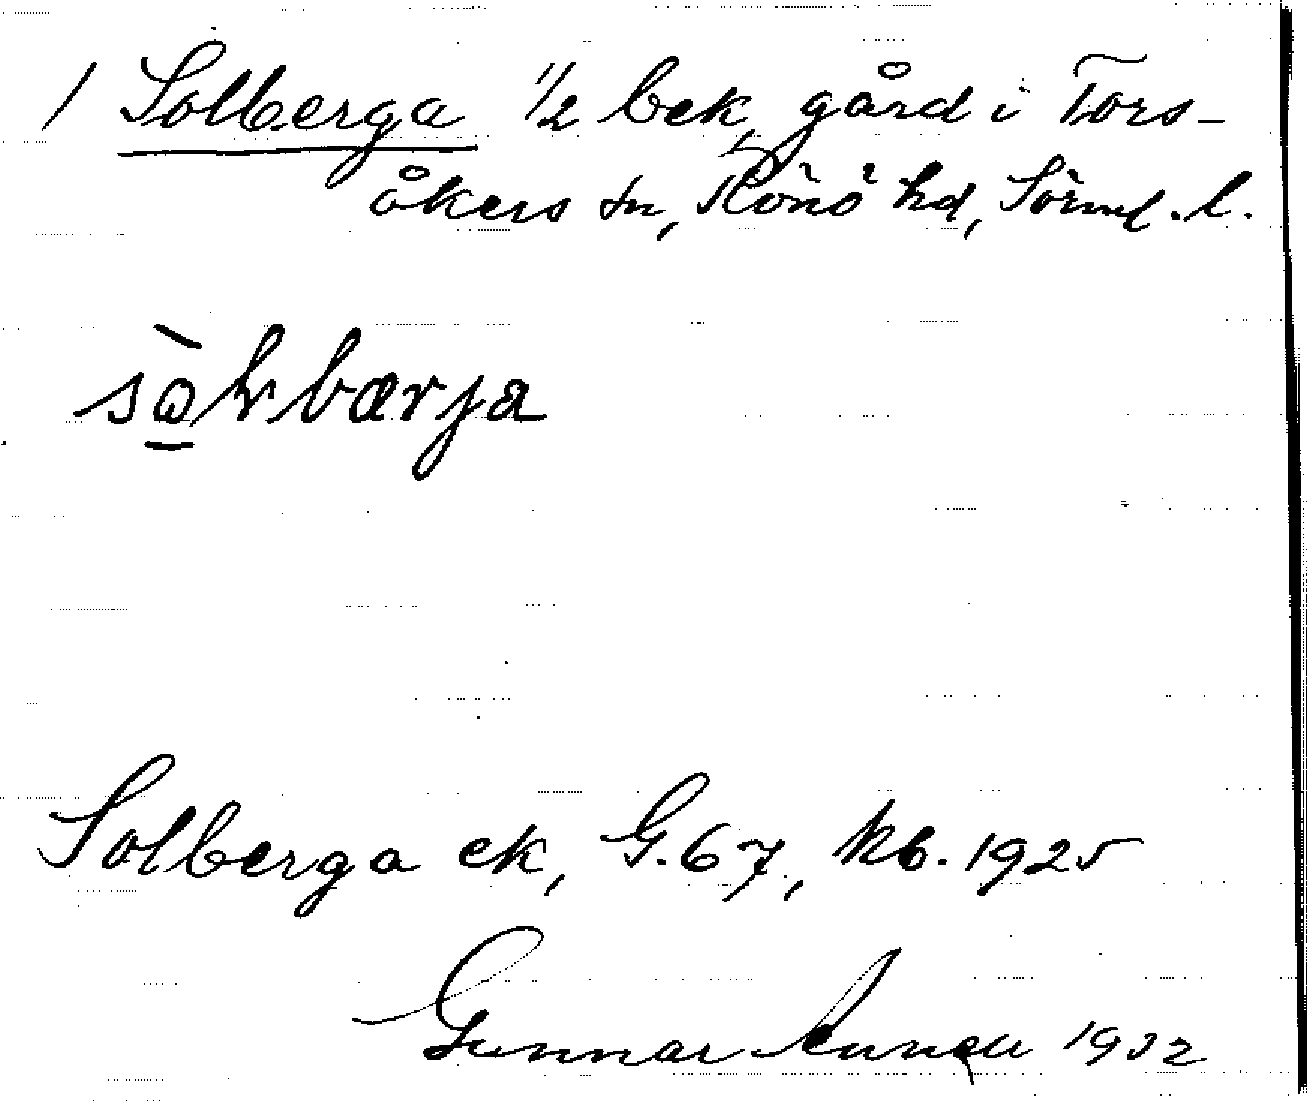 1 Solberga 1/2 bek, gård i Tors-
åkers sn, Rönö hd, Sörml. l.
sò̱ɫbærja
Solberga ek, G. 67, kb. 1925
Gunnar 1932